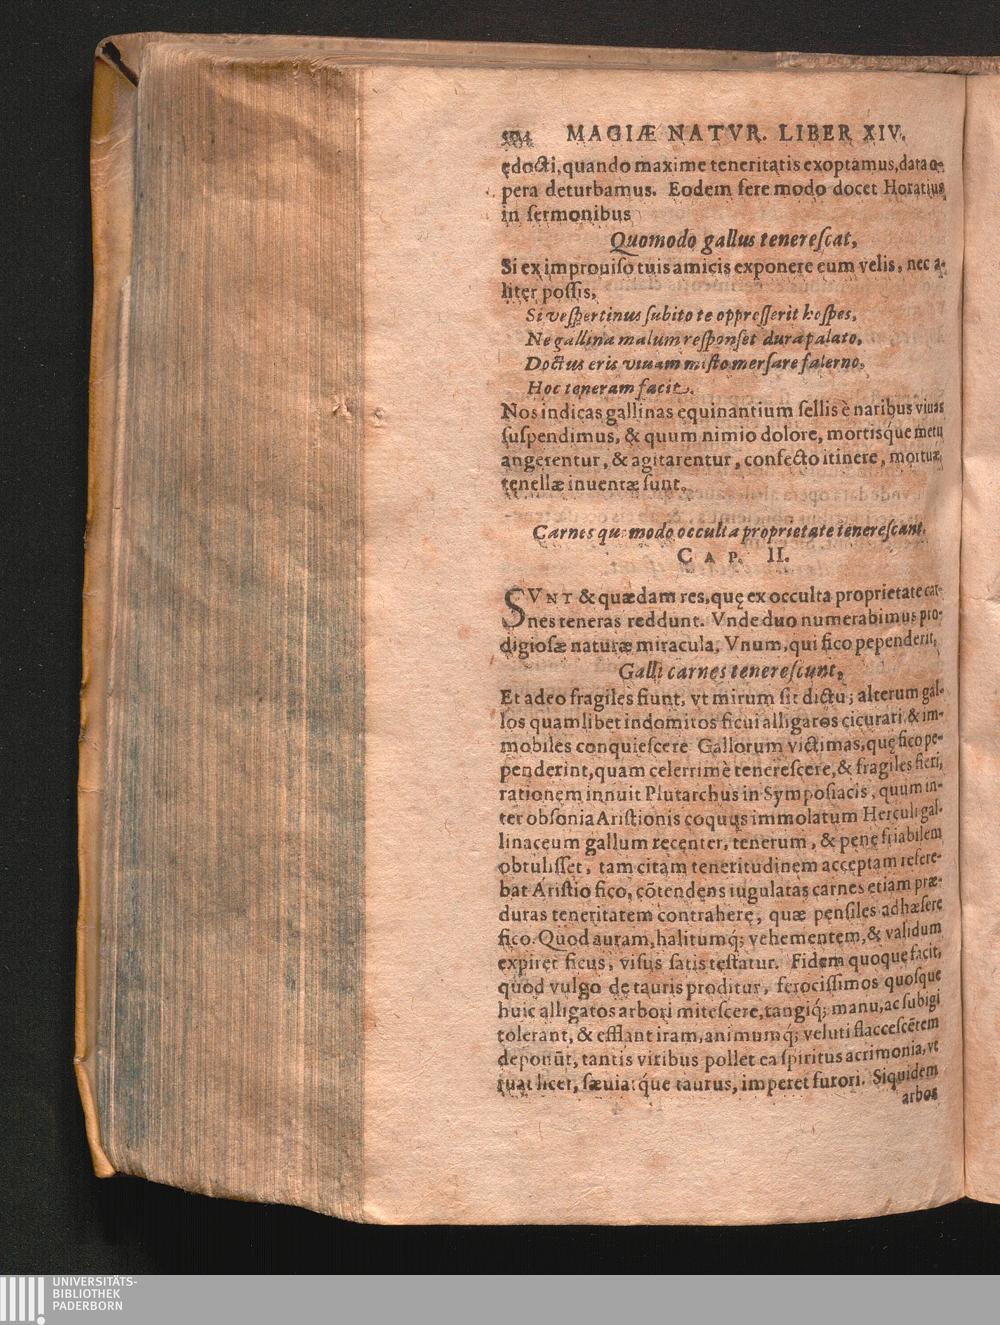 MAGIÆ NATVR. LIBER XIV.
ędocti, quando maxime teneritatis exoptamus, data o-
pera deturbamus. Eodem fere modo docet Horatius
in sermonibus
Quomodo gallus tenerescat,
Si ex improuiso tuis amicis exponere eum velis, nec a-
liter possis,
Si vespertinus subito te oppresserit hospes,
Ne gallina malum responset dura palato,
Doctus eris viuam misto mersare falerno,
Hoc teneram faciet.
Nos indicas gallinas equinantium sellis è naribus viuas
suspendimus, & quum nimio dolore, mortisq́ue metu
angerentur, & agitarentur, confecto itinere, mortuæ,
tenellæ inuentæ sunt.
Carnes quomodo occulta proprietate tenerescant.
CAP. II.
SVNT & quædam res, quę ex occulta proprietate car-
nes teneras reddunt. Vnde duo numerabimus pro-
digiosæ naturæ miracula, Vnum, qui fico pependerit,
Galli carnes tenerescunt,
Et adeo fragiles fiunt, vt mirum sit dictu; alterum gal-
los quamlibet indomitos ficui alligatos cicurari & im-
mobiles conquiescere Gallorum victimas, quę fico pe-
penderint, quam celerrimè tenerescere, & fragiles fieri,
rationem innuit Plutarchus in Symposiacis, quum in-
ter obsonia Aristionis coquus immolatum Herculi gal-
linaceum gallum recenter, tenerum, & penè friabilem
obtulisset, tam citam teneritudinem acceptam refere-
bat Aristio fico, cõtendens iugulatas carnes etiam præ-
duras teneritatem contrahere, quæ pensiles adhæsere
fico. Quod auram, halitumq́; vehementem, & validum
expiret ficus, visus satis testatur. Fidem quoque facit,
quod vulgo de tauris proditur, ferocissimos quosque
huic alligatos arbori mitescere, tangiq́; manu, ac subigi
tolerant, & efflant iram, animumq́; veluti flaccescẽtem
deponũt, tantis viribus pollet ea spiritus acrimonia, vt
quat licet, sæuiatq́ue taurus, imperet furori. Siquidem
arbos
UNIVERSITÄTS-
BIBLIOTHEK
PADERBORN